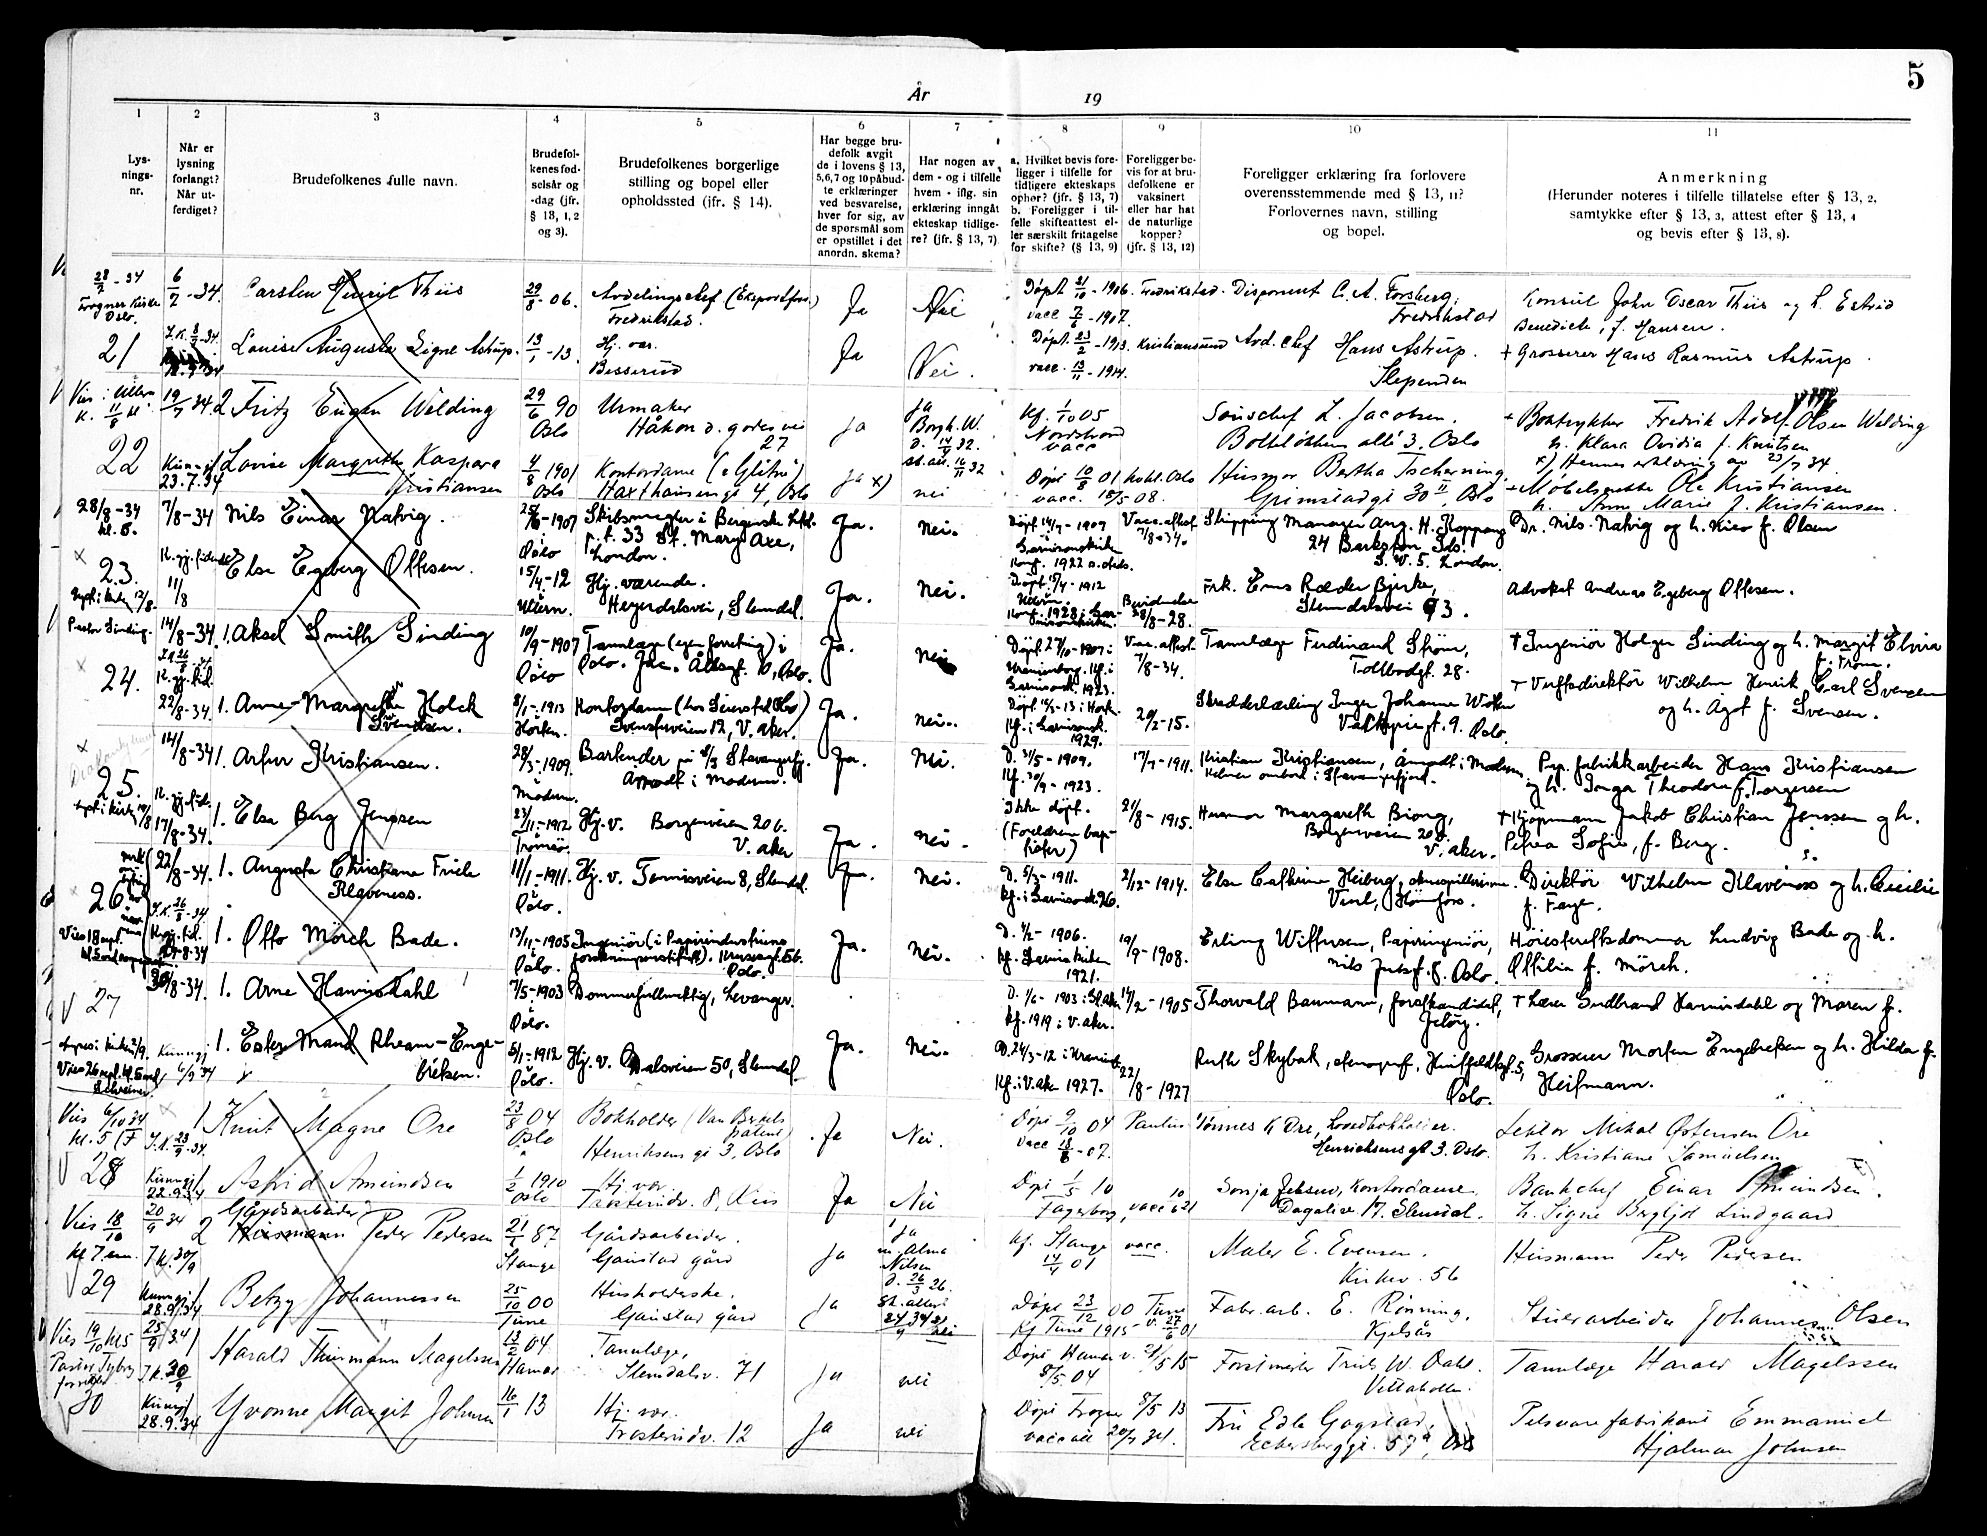 5
År 19
1 2 3 4 5 6 7 8 9 10 11
Lys-
nings-
nr.
Når er
lysning
forlangt?
Når ut-
ferdiget?
Brudefolkenes fulle navn.
Brudefol-
kenes fød-
selsår og
-dag (jfr.
§ 13, 1, 2
og 3).
Brudefolkenes borgerlige
stilling og bopel eller
opholdssted (jfr. § 14).
Har begge bru-
defolk avgit
de i lovens § 13,
5, 6, 7 og 10 påbud-
te erklæringer
ved besvarelse,
hver for sig, av
de spørsmål som
er opstillet i det
anordn. skema?
Har nogen av
dem - og i tilfelle
hvem - iflg. sin
erklæring inngåt
ekteskap tidlige-
re? (jfr. § 13, 7)
a. Hvilket bevis fore-
ligger i tilfelle for
tidligere ekteskaps
ophør? (jfr. § 13, 7)
b. Foreligger i til-
felle skifteattest el-
ler særskilt fritagelse
for skifte? (§ 13, 9)
Foreligger be-
vis for at bru-
defolkene er
vaksinert
eller har hat
de naturlige
kopper?
(jfr. § 13, 12)
Foreligger erklæring fra forlovere
overensstemmende med § 13, 11?
Forlovernes navn, stilling
og bopel.
Anmerkning
(Herunder noteres i tilfelle tillatelse efter § 13, 2,
samtykke efter § 13, 3, attest efter § 13, 4
og bevis efter § 13, 8).
28/7 - 34
Frogner Kirke
Oslo.
21
6/7 - 34.
Carsten Henrik Thiis
29/8 - 06.
Avdelingschef (Eksportfor.)
Fredrikstad.
Ja
Nei
Døpt 21/10 - 1906. Fredrikstad.
vacc 7/6 - 1907.
Disponent C. A. Forsberg,
Fredrikstad
Konsul John Oscar Thiis og h. Estrid
Benedicte, f. Hansen.
Louise Augusta Signe Astrup.
13/1 - 13.
Hj. vær.
Besserud
Ja
Nei.
Døpt 23/2 - 1913. Kristiansund
vacc. 13/11 - 1914.
Avd. chef Hans Astrup.
Slependen
+ Grosserer Hans Rasmus Astrup.
Vies i Ullern
K. 11/8 kl
22
19/7 34.
2 Fritz Eugen Welding
29/6 90
Oslo
Urmaker
Håkon d. godes vei
27
Ja
Ja
Borgh. W.
D. 14/9 32.
Kf. 1/10 05
Nordstrand
vacc
Souschef L. Jacobsen.
Bolteløkken allé 3. Oslo
Boktrykker Fredrik Adolf Olsen Welding
h. Klara Ovidia f. Knutsen
x) Hennes erklæring av 23/7 34.
Kunngj
23.7.34
Lovise Margrethe Kaspara
Kristiansen
4/8 1901
Oslo
Kontordame ("Glitre")
Harxthausensgt 4, Oslo
Ja x)
nei
Døpt 10/8 01
vacc. 18/5 08.
Husmor Bertha Tscherning
Grimstadgt 30 II, Oslo
Møbelsnekker Ole Kristiansen
h. Anne Marie f. Kristiansen.
28/8 - 34
kl. 5.
23.
7/8 - 34
Nils Einar Natvig.
1907
Oslo
Skibsmegler i Bergenske
p.t. 33 St. Mary Axe,
London.
Ja.
Nei.
Døpt 14/7 - 1907
Garnisonskirken
Konf. 1922 s. steds.
Vacc. attest
7/8 - 34.
Shipping Manager Aug. H. Koppang
24 Barkston Gds.
S.W. 5. London.
Dr. Nils Natvig og h. Nico f. Olsen
11/8
Else Egeberg Ottesen.
15/4 - 12
Ullern.
Hj. værende.
Heyerdahlsvei, Slemdal.
Ja.
Nei.
Frk. Ems Ræder Bjerke,
Slemdalsvei 93.
Advokat Andreas Egeberg Ottesen.
Pastor Sinding.
24.
14/8 - 34.
1. Aksel Smith Sinding
10/9 - 1907
Oslo
Tannlæge (egen forretning) i
Oslo. Jac. Aallsgt. 10, Oslo.
Ja.
Nei
Vacc. attest
7/8 - 34.
Tannlæge Ferdinand Strøm,
Tollbodgt. 28.
+ Ingeniør Holger Sinding og h. Margit Elvira
f. Trom.
22/8 - 34.
1. Anne-Margrethe Holck
Svendsen.
8/1 - 1913
Horten.
Ja.
Nei.
20/2 - 15.
Valkyriegt. 9. Oslo.
+ Verftsdirektør Wilhelm Henrik Carl Svensen
og h. Agot f. Svensen.
25.
14/8 - 34
1. Artur Kristiansen.
28/3 - 1909.
Modum.
Bartender på Stavangerfj.
Åmodt i Modum.
Ja.
Nei.
D. 31/5 - 1909.
Kf. 30/9 - 1923.
17/7 - 1911.
Kristian Kristiansen, Åmodt i Modum
Kelner ombord i Stavangerfjord.
Pap. fabrikkarbeider Hans Kristiansen
og h. Inga Theodora f. Torgersen
17/8 - 34.
1. Elsa Berg Jenssen
27/11 - 1912
Tromsø.
Hj. v. Borgenveien 20 b.
V. aker
Ja.
Nei.
Ikke døpt.
(Foreldrene bap-
tister)
21/8 - 1915.
Husmor Margareth Biong,
Borgenveien 20 b.
V. aker.
+ Kjøpmann Jakob Christian Jenssen og h.
Petrea Sofie, f. Berg.
26
22/8 - 34.
1. Augusta Christiane Friele
Klaveness.
11/1 - 1911.
Oslo.
Hj. v. Tennisveien 8, Slemdal.
Ja.
Nei.
D. 5/3 - 1911.
Kf. i Garnisonsk. 26.
2/12 - 1914.
Else Cathrine Heiberg,
Direktør Wilhelm Klaveness og h. Cecilie
f. Faye.
1. Otto Mørch Bade.
13/11 - 1905
Oslo.
Ingeniør (i Papirindustriens
forskningsinstitutt).
Oslo.
Ja.
Nei.
D. 1/2 - 1906.
Kf. Garnisonskirken
1921.
19/9 - 1908.
Erling Wiffersen, Papiringeniør,
Nils Juelsgt. 8. Oslo.
Høiesterettsdommer Ludvig Bade og h.
Ottilia f. Mørch.
27
30/8 - 34.
1. Arne Hannisdahl
7/5 - 1903
Oslo.
Dommerfullmektig, Levanger.
D. 1/6 - 1903
Kf. 1919 i V. aker.
14/2 - 1905
Thorvald Baumann, forstkandidat,
Jeløy.
+ Lærer Gudbrand Hannisdahl og Maren f.
Kunngj
6/9 34
1. Ester Maud Rheam-Enge-
bretsen.
5/1 - 1912
Oslo.
Hj. v. Dalsveien 50, Slemdal
Ja.
Nei.
Kf. i V. aker 1927.
22/8 - 1927
Ruth Skybak, stenograf, Huitfeldtsgt. 5,
Oslo.
Grosserer Morten Engebretsen og h. Hilda f.
Heitmann.
Vies 6/10 34
kl. 5 (F
28
J.K. 23/9 - 34.
1 Knut Magne Ore
23/8 04
Oslo
Bokholder (Van Berkels
patent)
Henriksens gt 3, Oslo
Ja
Nei.
Døpt 9/10 04 Paulus
vacc 18/6 - 07.
Tønnes K Ore, Hovedbokholder.
Henrichsens gt 3. Oslo.
Lektor Mikal Østensen Ore
h. Kristiane Samuelsen
Kunngj
22.9.34
Astrid Amundsen
1/2 1910
Oslo
Hj. vær.
Trosterudv. 8, Riis
Ja
Nei
Døpt 1/5 10
Fagerborg, vacc
Sonja Jebsen, Kontordame.
Dagalive. 17. Slemdal.
Bankchef Einar Amundsen.
h. Signe Bergljot Lindgaard
Vies 18/10
kl 7. em.
29
20/9 34
J.K. 30/9
Gårdsarbeider
2 Husmann Peder Pedersen
21/1 87
Stange
Gårdsarbeider.
Gaustad gård
Ja
Ja
m. Alma
Nilsen
D. 26/3 26.
Kf. Stange
14/4 01
vacc.
Maler E. Evensen.
Kirkev. 56
Husmann Peder Pedersen
Kunngj
28.9.34
Betzy Johannessen
25/10 00
Tune
Husholderske.
Gaustad gård
Ja
nei
Døpt 23/12 00 Tune
Kf Tune 1915 v. 27/6 01
Fabr. arb. E. Rønning.
Kjelsås
Stuerarbeider Johannes Olsen
Vies 19/10 kl 5
Pastor Tybring
forretter
30
25/9 34
J.K. 30/9
1
Harald Thurmann Magelssen
13/2 04
Hamar
Tannlæge,
Slemdalsv. 71
Ja
nei
Døpt Hamar
8/5 04
v. 21/5 15
Forstmester Truls W. Dahl.
Vettakollen.
Tannlæge Harald Magelssen
Kunngj
28.9.34
Yvonne Margit Johnsen
16/1 13
Hj. vær.
Trosterudv. 12
Ja
nei
Døpt Frogner 8/5 13
Fru Edle Gogstad,
Eckersbergsgt. 57a, Oslo
Pelsvarefabrikant Emmanuel
Hjalmar Johnsen